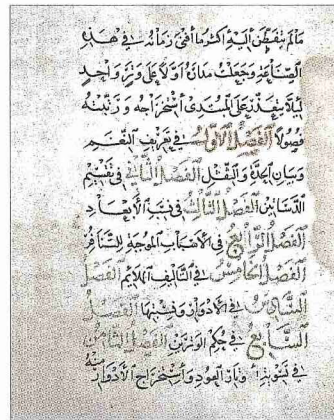 مالم يتفطن اليه اكثر ما افنى زمانه في هذه
الصناعة وجعلت مداره اولا على وتر واحد
ليلا يتعذر على المبتدى استخراجه ورتبته
فصولا الفصل الأول في تعريف النغم
وبيان الحدة والثقل الفصل الثاني في تقسيم
الدساتين الفصل الثالث في نسب الأبعاد
الفصل الرابع في الاسباب الموجبة للتنافر
الفصل الخامس في التاليف الملايم الفصل
السادس في الأدوار ونسبها الفصل
السابع في حكم الوترين الفصل الثامن
في تسوية اوتار العود واستخراج الأدوار منه